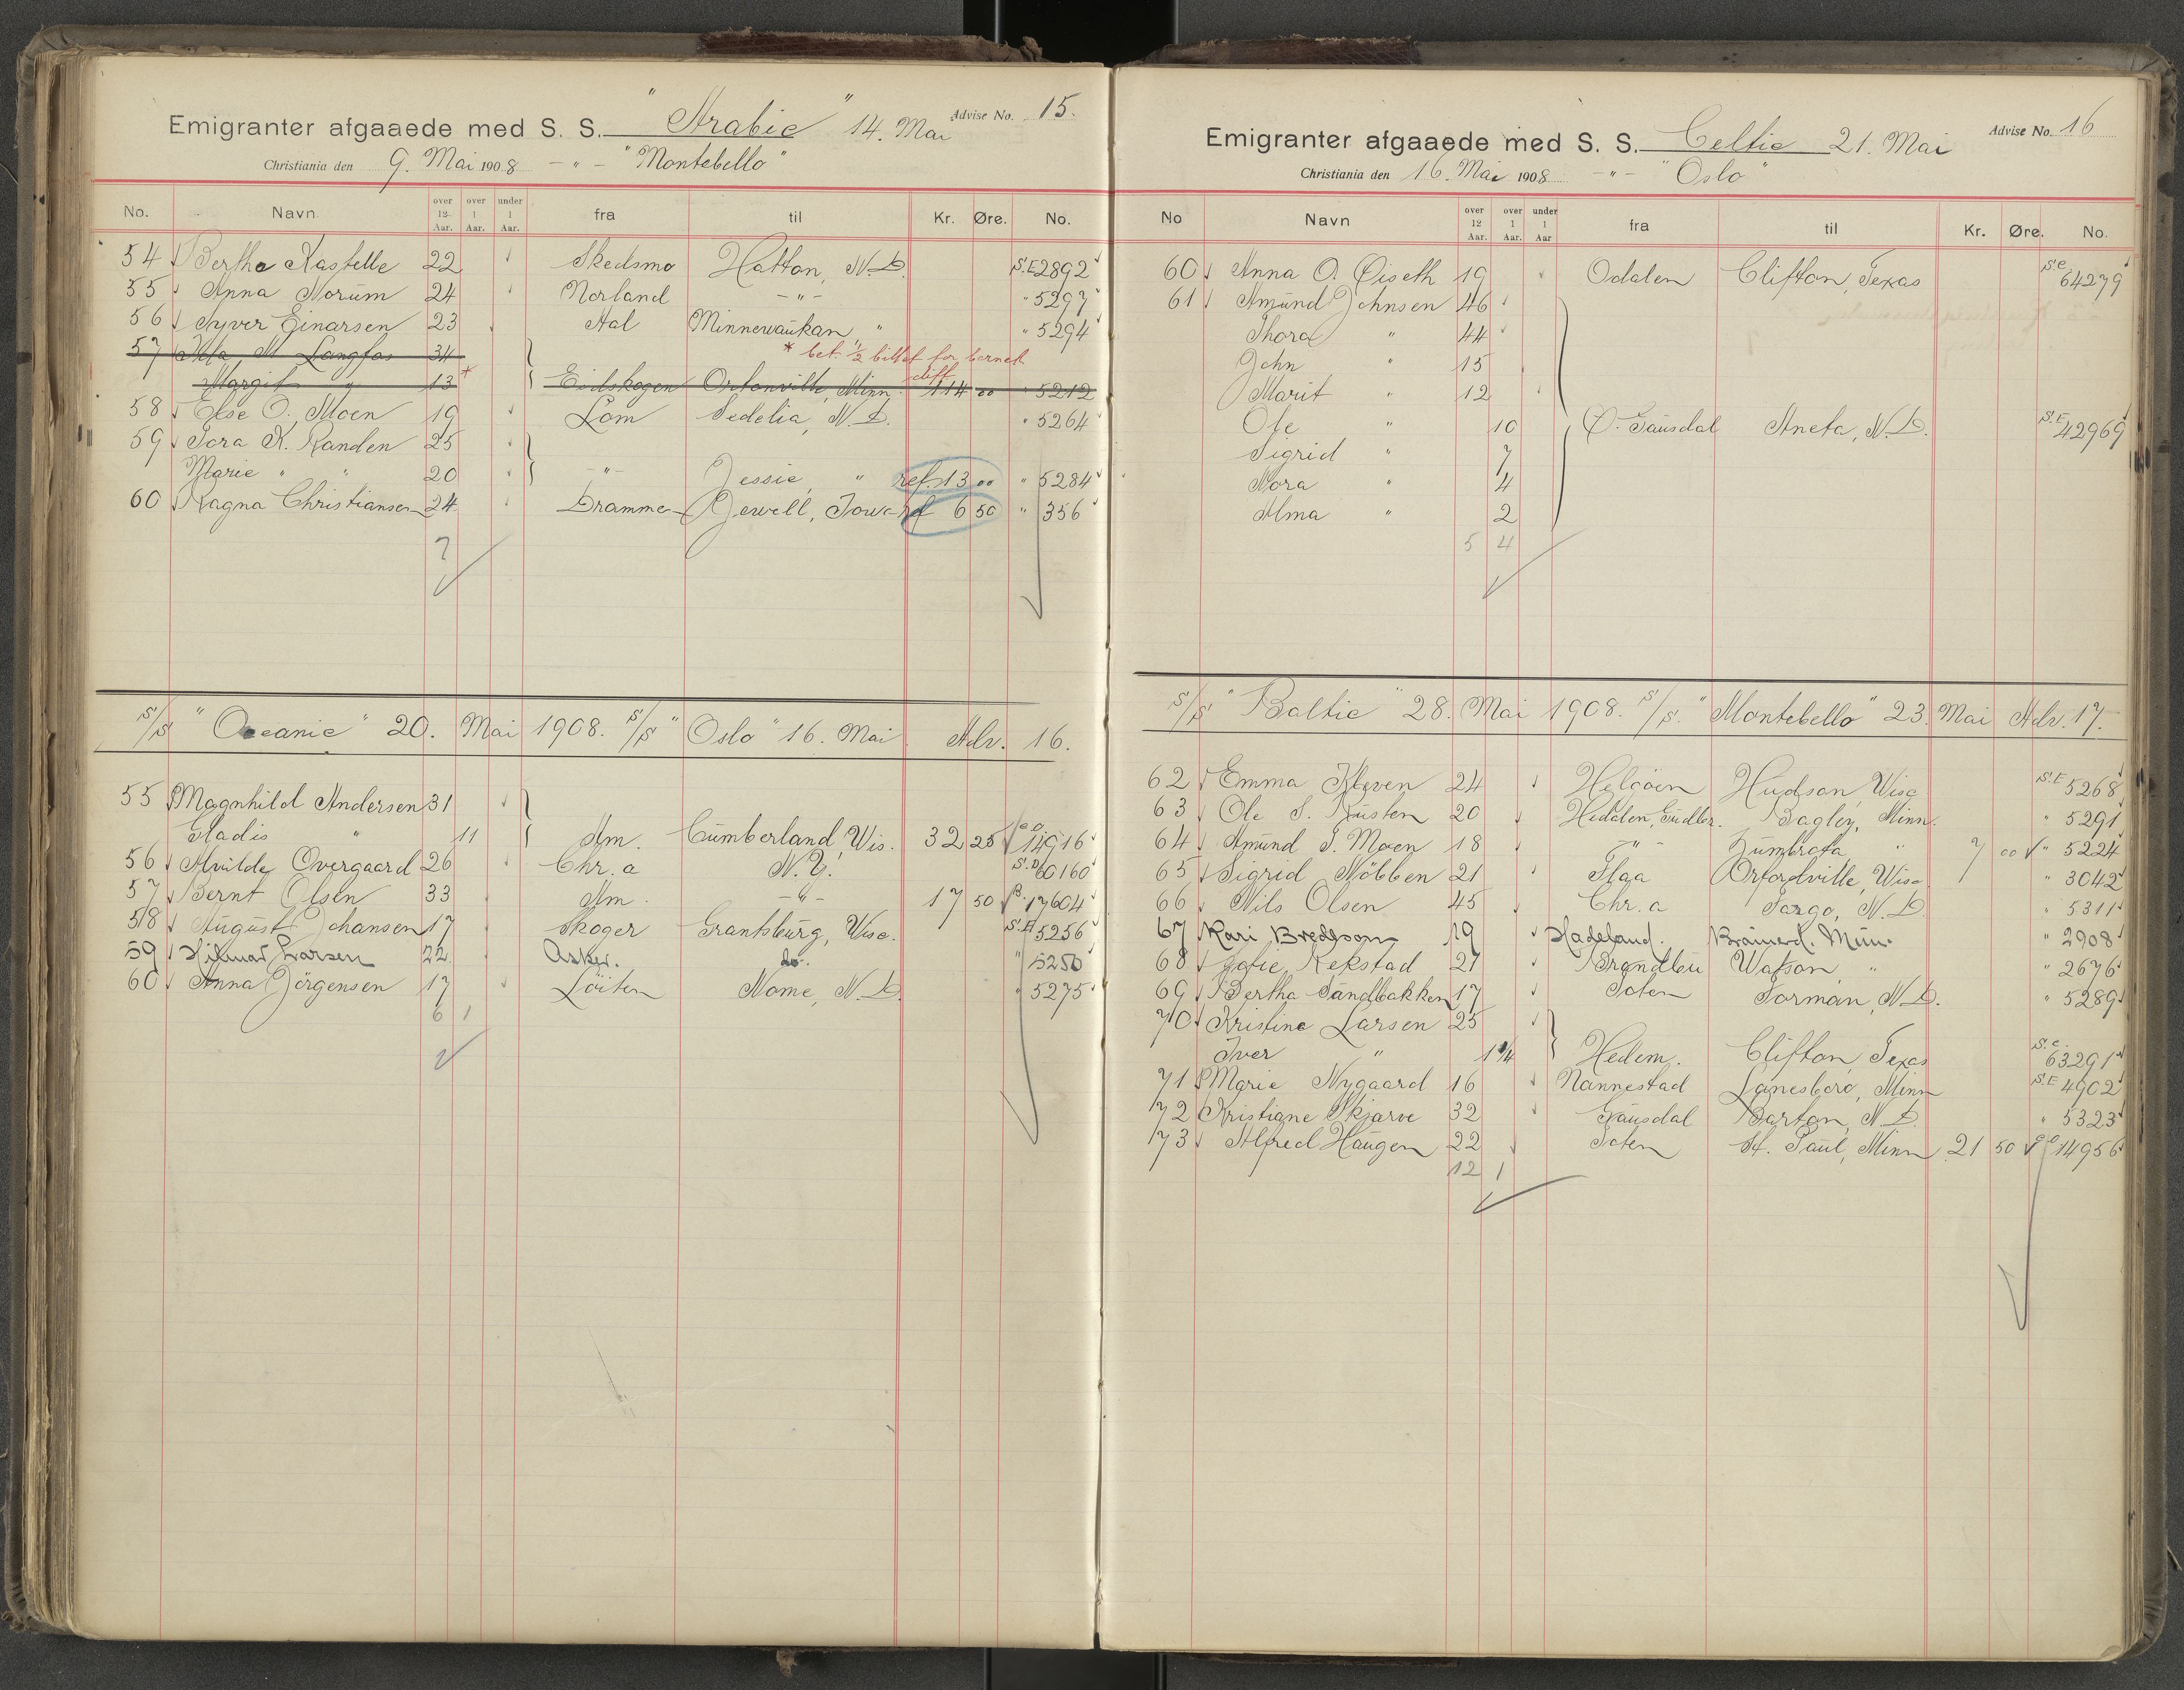 Emigranter afgaaede med S. S. "Arabic" 14. Mai Advise No. 15.
Christiania den 9. Mai 1908 - " - "Montebello"
No. Navn over 12 Aar. over 1 Aar. under 1 Aar. fra til Kr. Øre. No.
54 Berthe Kastelle 22 Skedsmo Hatton, N.D. S.E 2892
55 Anna Norum 24 Norland - " - " 5297
56 Syver Einarsen 23 Aal Minnewaukan, " " 5294
* bet. 1/2 billet for barnet
57 M. Langfos 34
Margit " 13 * Eidskogen Ortonville, Minn. diff 114 00 " 5212
58 Else O. Moen 19 Lom Sedelia, N.D. " 5264
59 Tora K. Randen 25
Marie " " 20 - " - Jessie, " ref. 13 00 " 5284
60 Ragna Christiansen 24 Drammen Jewell, Iowa ref 6 50 " 356
7
S/S "Oceanic" 20. Mai 1908. S/S "Oslo" 16. Mai Adv. 16.
55 Magnhild Andersen 31
Gladis " 11 Am. Cumberland, Wis. 32 25 14916
56 Alvilde Overgaard 26 Chr.a N.Y. S.D 60160
57 Bernt Olsen 33 Am. - " - 17 50 B. 17604
58 August Johansen 17 Skoger Grantsburg, Wisc. S.E 5256
59 Hilmar Larsen 22 Asker. do. " 5250
60 Anna Jörgensen 17 Löiten Nome, N.D. " 5275
6 1
Emigranter afgaaede med S. S. Celtic 21. Mai Advise No. 16
Christiania den 16. Mai 1908 - " - "Oslo"
No Navn over 12 Aar. over 1 Aar. under 1 Aar fra til Kr. Øre. No.
60 Anna O. Øiseth 19 Odalen Clifton, Texas S.C. 64279
61 Amund Johnsen 46
Thora " 44
John " 15
Marit " 12
Ole " 10 Ø. Gausdal Aneta, N.D. S.E 42969
Sigrid " 7
Nora " 4
Alma " 2
5 4
S/S "Baltic" 28. Mai 1908. S/S. "Montebello" 23. Mai Adv. 17.
62 Emma Kleven 24 Helgöen Hudson, Wisc S.E 5268
63 Ole S. Rusten 20 Hedalen, Gudbr. Bagley, Minn. " 5291
64 Amund S. Moen 18 - " - Zumbrota " 7 00 " 5224
65 Sigrid Nöbben 21 Flaa Orfordville, Wisc " 3042
66 Nils Olsen 45 Chr.a Fargo, N.D. " 5311
67 Kari Bredeson 19 Hadeland. Brainerd. Minn. " 2908
68 Gotie Rekstad 21 Brandbu Watson, " " 2676
69 Bertha Sandbakken 17 Toten Forman, N.D. " 5289
70 Kristine Larsen 25
Iver " 1 3/4 Hedem. Clifton, Texas S.C. 63291
71 Marie Nygaard 16 Nannestad Lanesboro, Minn S.E 4902
72 Kristiane Skjarve 32 Gausdal Barton, N.D. " 5323
73 Alfred Haugen 22 Toten St. Paul, Minn 21 50 14956
12 1